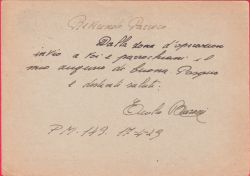 Reverendo Parroco
Dalla zona d'operazioni
invio a Voi e parrochiani il
mio augurio di buona Pasqua
e distinti saluti.
P.M. 149. 17-4-